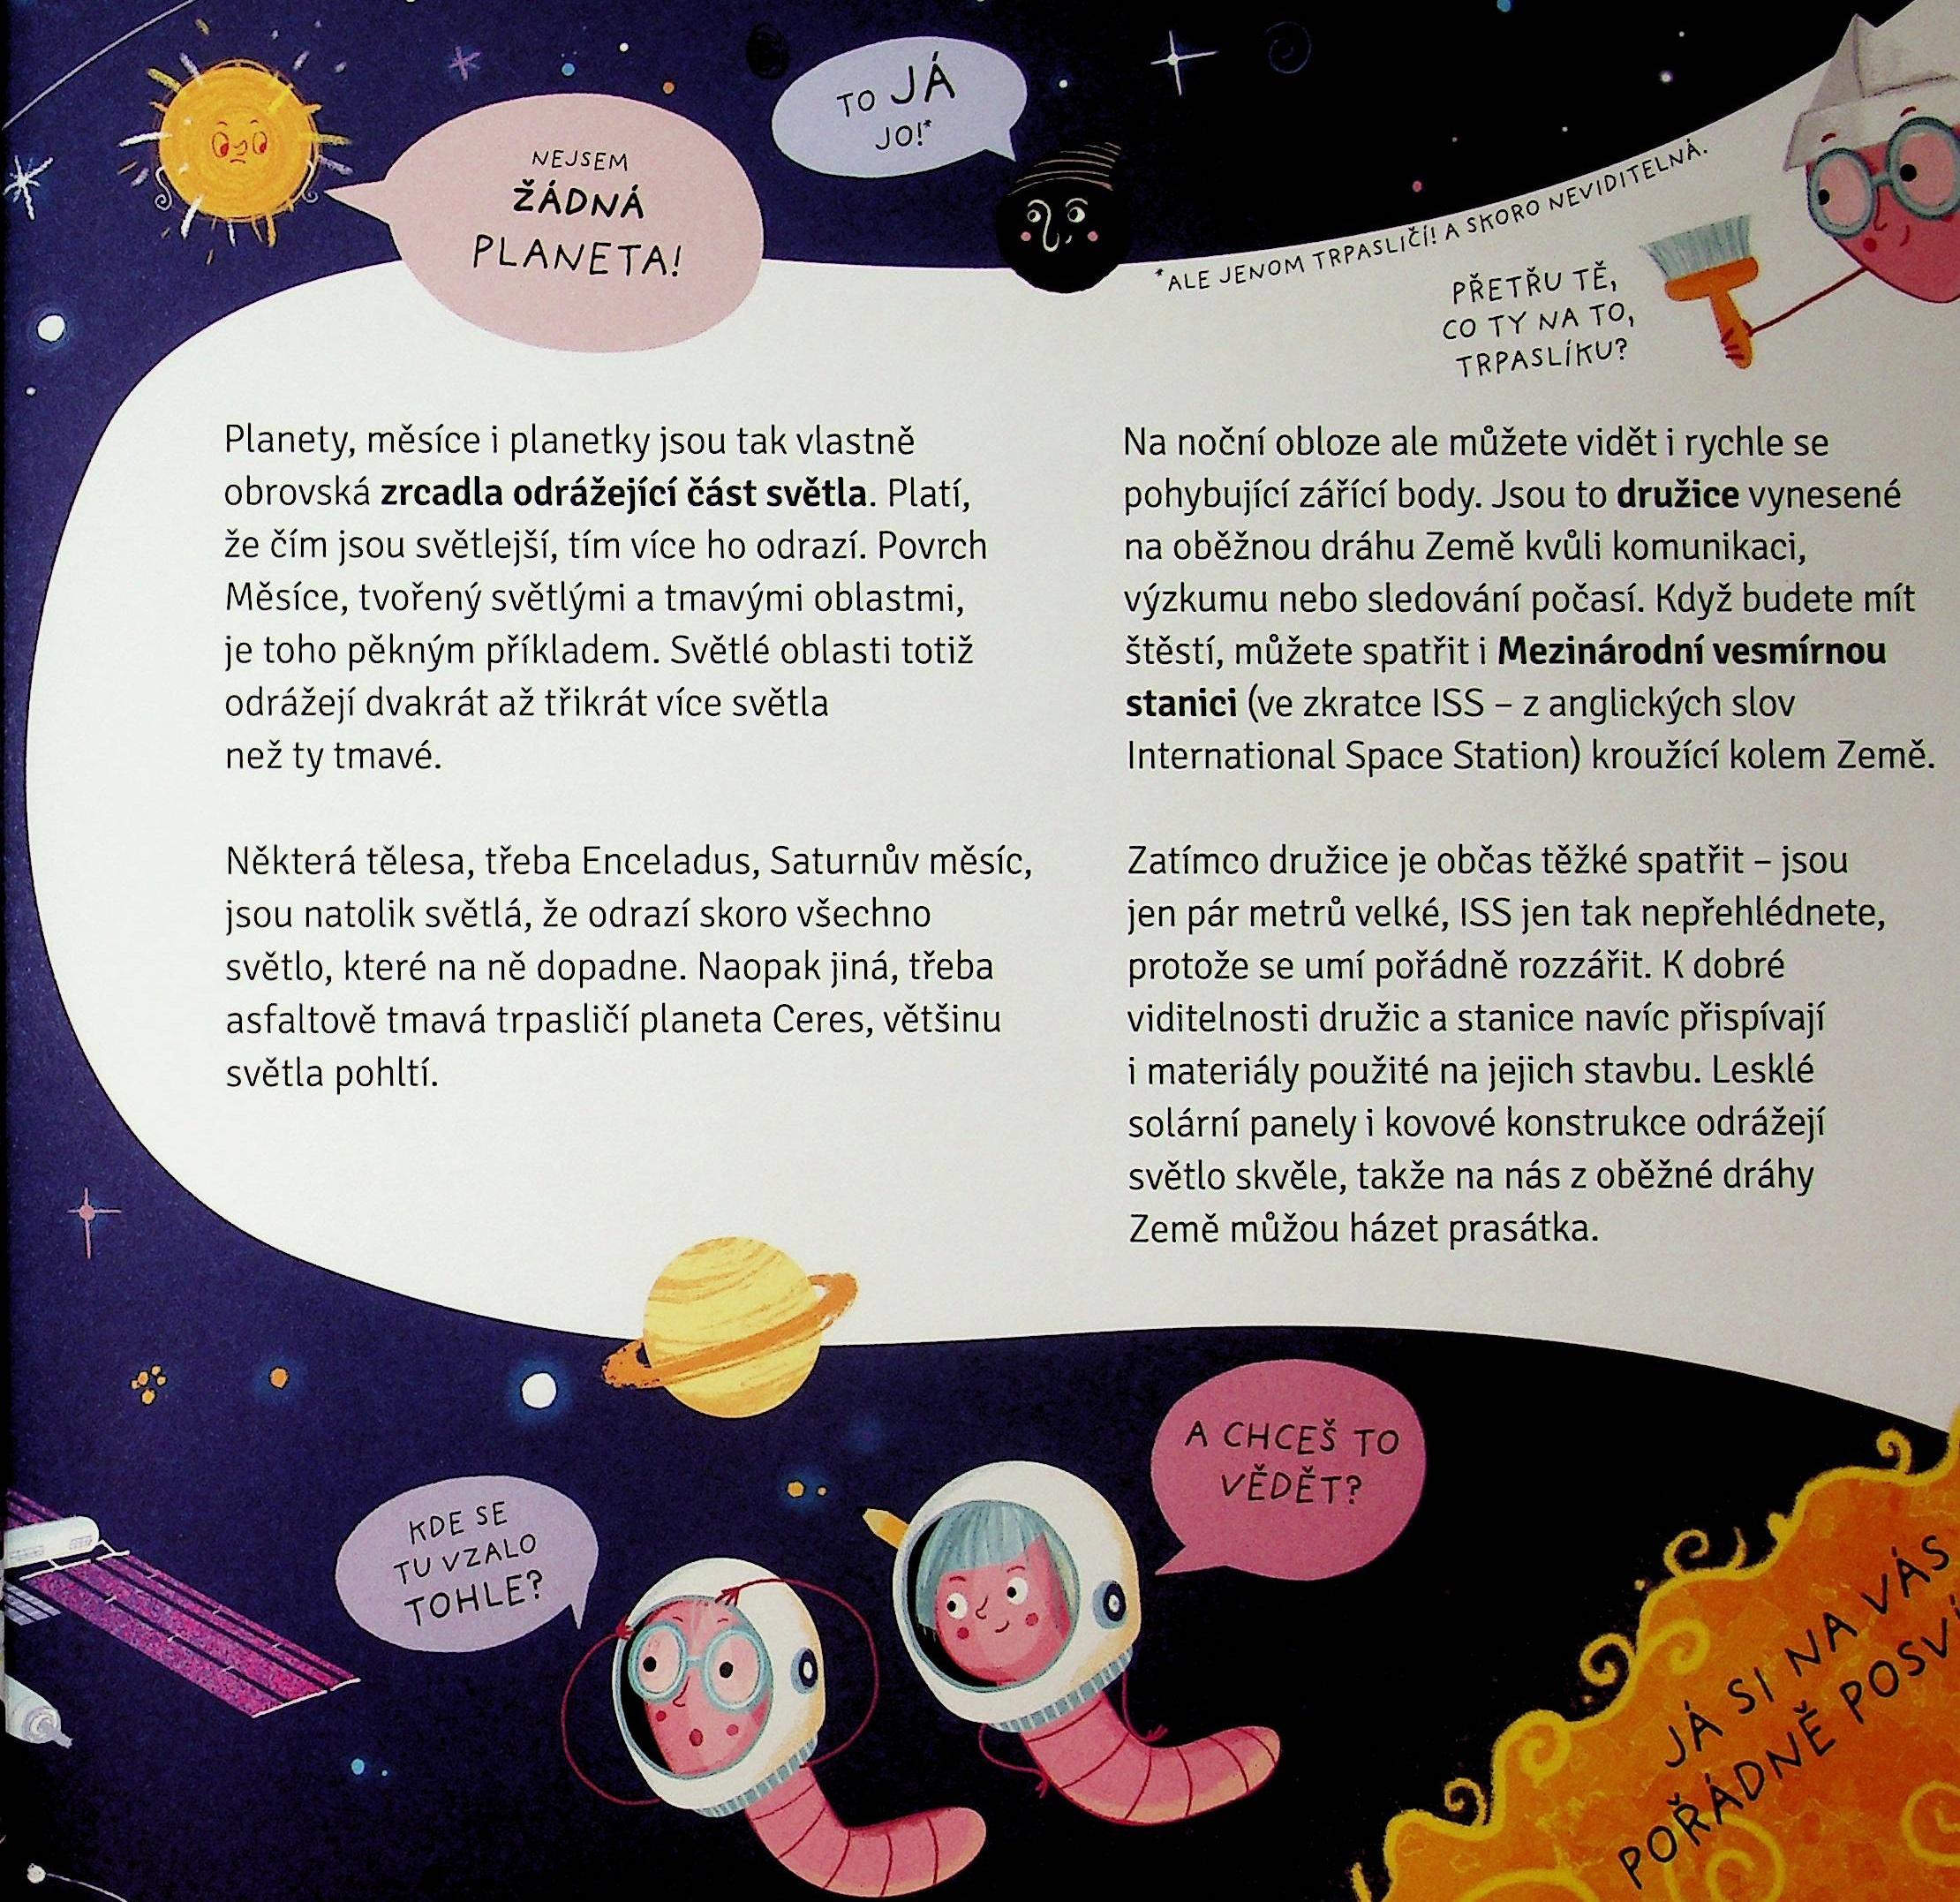 NEJSEM
ŽÁDNÁ
PLANETA!
TO JÁ
JO!*
*ALE JENOM TRPASLIČÍ! A SKORO NEVIDITELNÁ.
PŘETŘU TĚ,
CO TY NA TO,
TRPASLÍKU?
Planety, měsíce i planetky jsou tak vlastně
obrovská zrcadla odrážející část světla. Platí,
že čím jsou světlejší, tím více ho odrazí. Povrch
Měsíce, tvořený světlými a tmavými oblastmi,
je toho pěkným příkladem. Světlé oblasti totiž
odrážejí dvakrát až třikrát více světla
než ty tmavé.
Některá tělesa, třeba Enceladus, Saturnův měsíc,
jsou natolik světlá, že odrazí skoro všechno
světlo, které na ně dopadne. Naopak jiná, třeba
asfaltově tmavá trpasličí planeta Ceres, většinu
světla pohltí.
Na noční obloze ale můžete vidět i rychle se
pohybující zářící body. Jsou to družice vynesené
na oběžnou dráhu Země kvůli komunikaci,
výzkumu nebo sledování počasí. Když budete mít
štěstí, můžete spatřit i Mezinárodní vesmírnou
stanici (ve zkratce ISS – z anglických slov
International Space Station) kroužící kolem Země.
Zatímco družice je občas těžké spatřit – jsou
jen pár metrů velké, ISS jen tak nepřehlédnete,
protože se umí pořádně rozzářit. K dobré
viditelnosti družic a stanice navíc přispívají
i materiály použité na jejich stavbu. Lesklé
solární panely i kovové konstrukce odrážejí
světlo skvěle, takže na nás z oběžné dráhy
Země můžou házet prasátka.
KDE SE
TU VZALO
TOHLE?
A CHCEŠ TO
VĚDĚT?
JÁ SI NA VÁS
POŘÁDNĚ